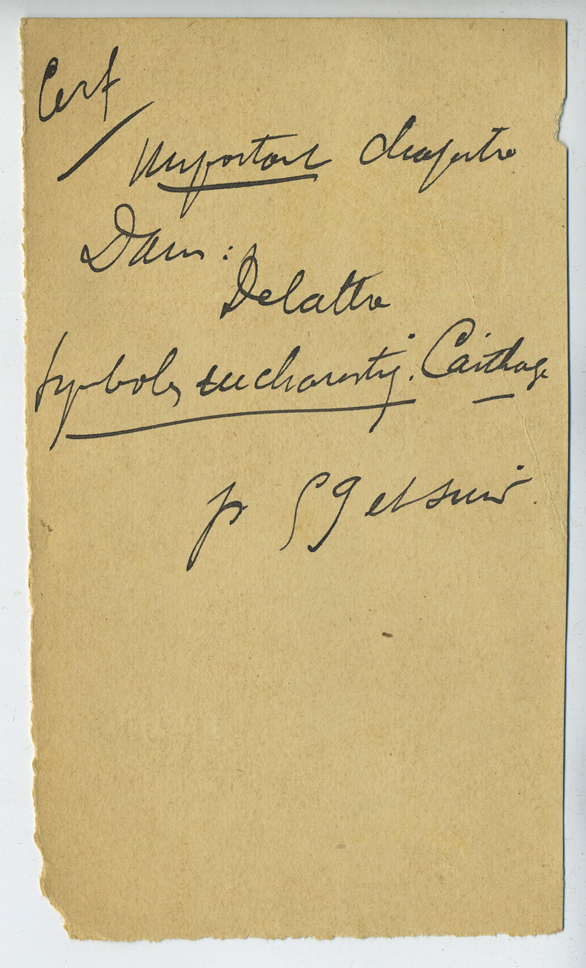 Cerf
Important chapitre
Dans :
Delattre
Symboles eucharistiq. Carthage
p 59 et suiv